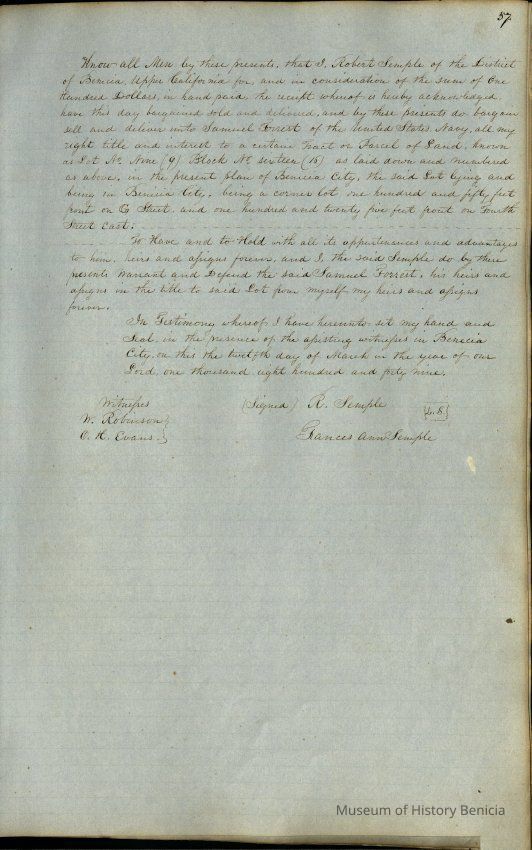 57.
Know all Men by these presents, that I, Robert Semple of the District
of Benicia, Upper California for, and in consideration of the sum of One
Hundred Dollars, in hand paid, the receipt whereof is hereby acknowledged,
have this day bargained sold and delivered, and by these presents do bargain
sell and deliver unto Samuel Forrest of the United States Navy, all my
right title and interest to a certain Tract or Parcel of Land, known
as Lot No. Nine (9) Block No. sixteen (16) as laid down and numbered
as above, in the present plan of Benicia City, the said Lot lying and
being in Benicia City, being a corner lot, one hundred and fifty feet
front on G Street, and one hundred and twenty five feet front on Fourth
Street East.
To Have and to Hold with all its appurtenances and advantages
to him, heirs and assigns forever, and I, the said Semple do by these
presents Warrant and Defend the said Samuel Forrest, his heirs and
assigns in the title to said Lot from myself, my heirs and assigns
forever.
In Testimony whereof I have hereunto set my hand and
Seal, in the presence of the attesting witnesses in Benicia
City, on this the twelfth day of March in the year of our
Lord, one thousand eight hundred and forty nine.
Witnesses (Signed) R. Semple L.S.
W. Robinson
O. H. Evans. Frances Ann Semple
Museum of History Benicia